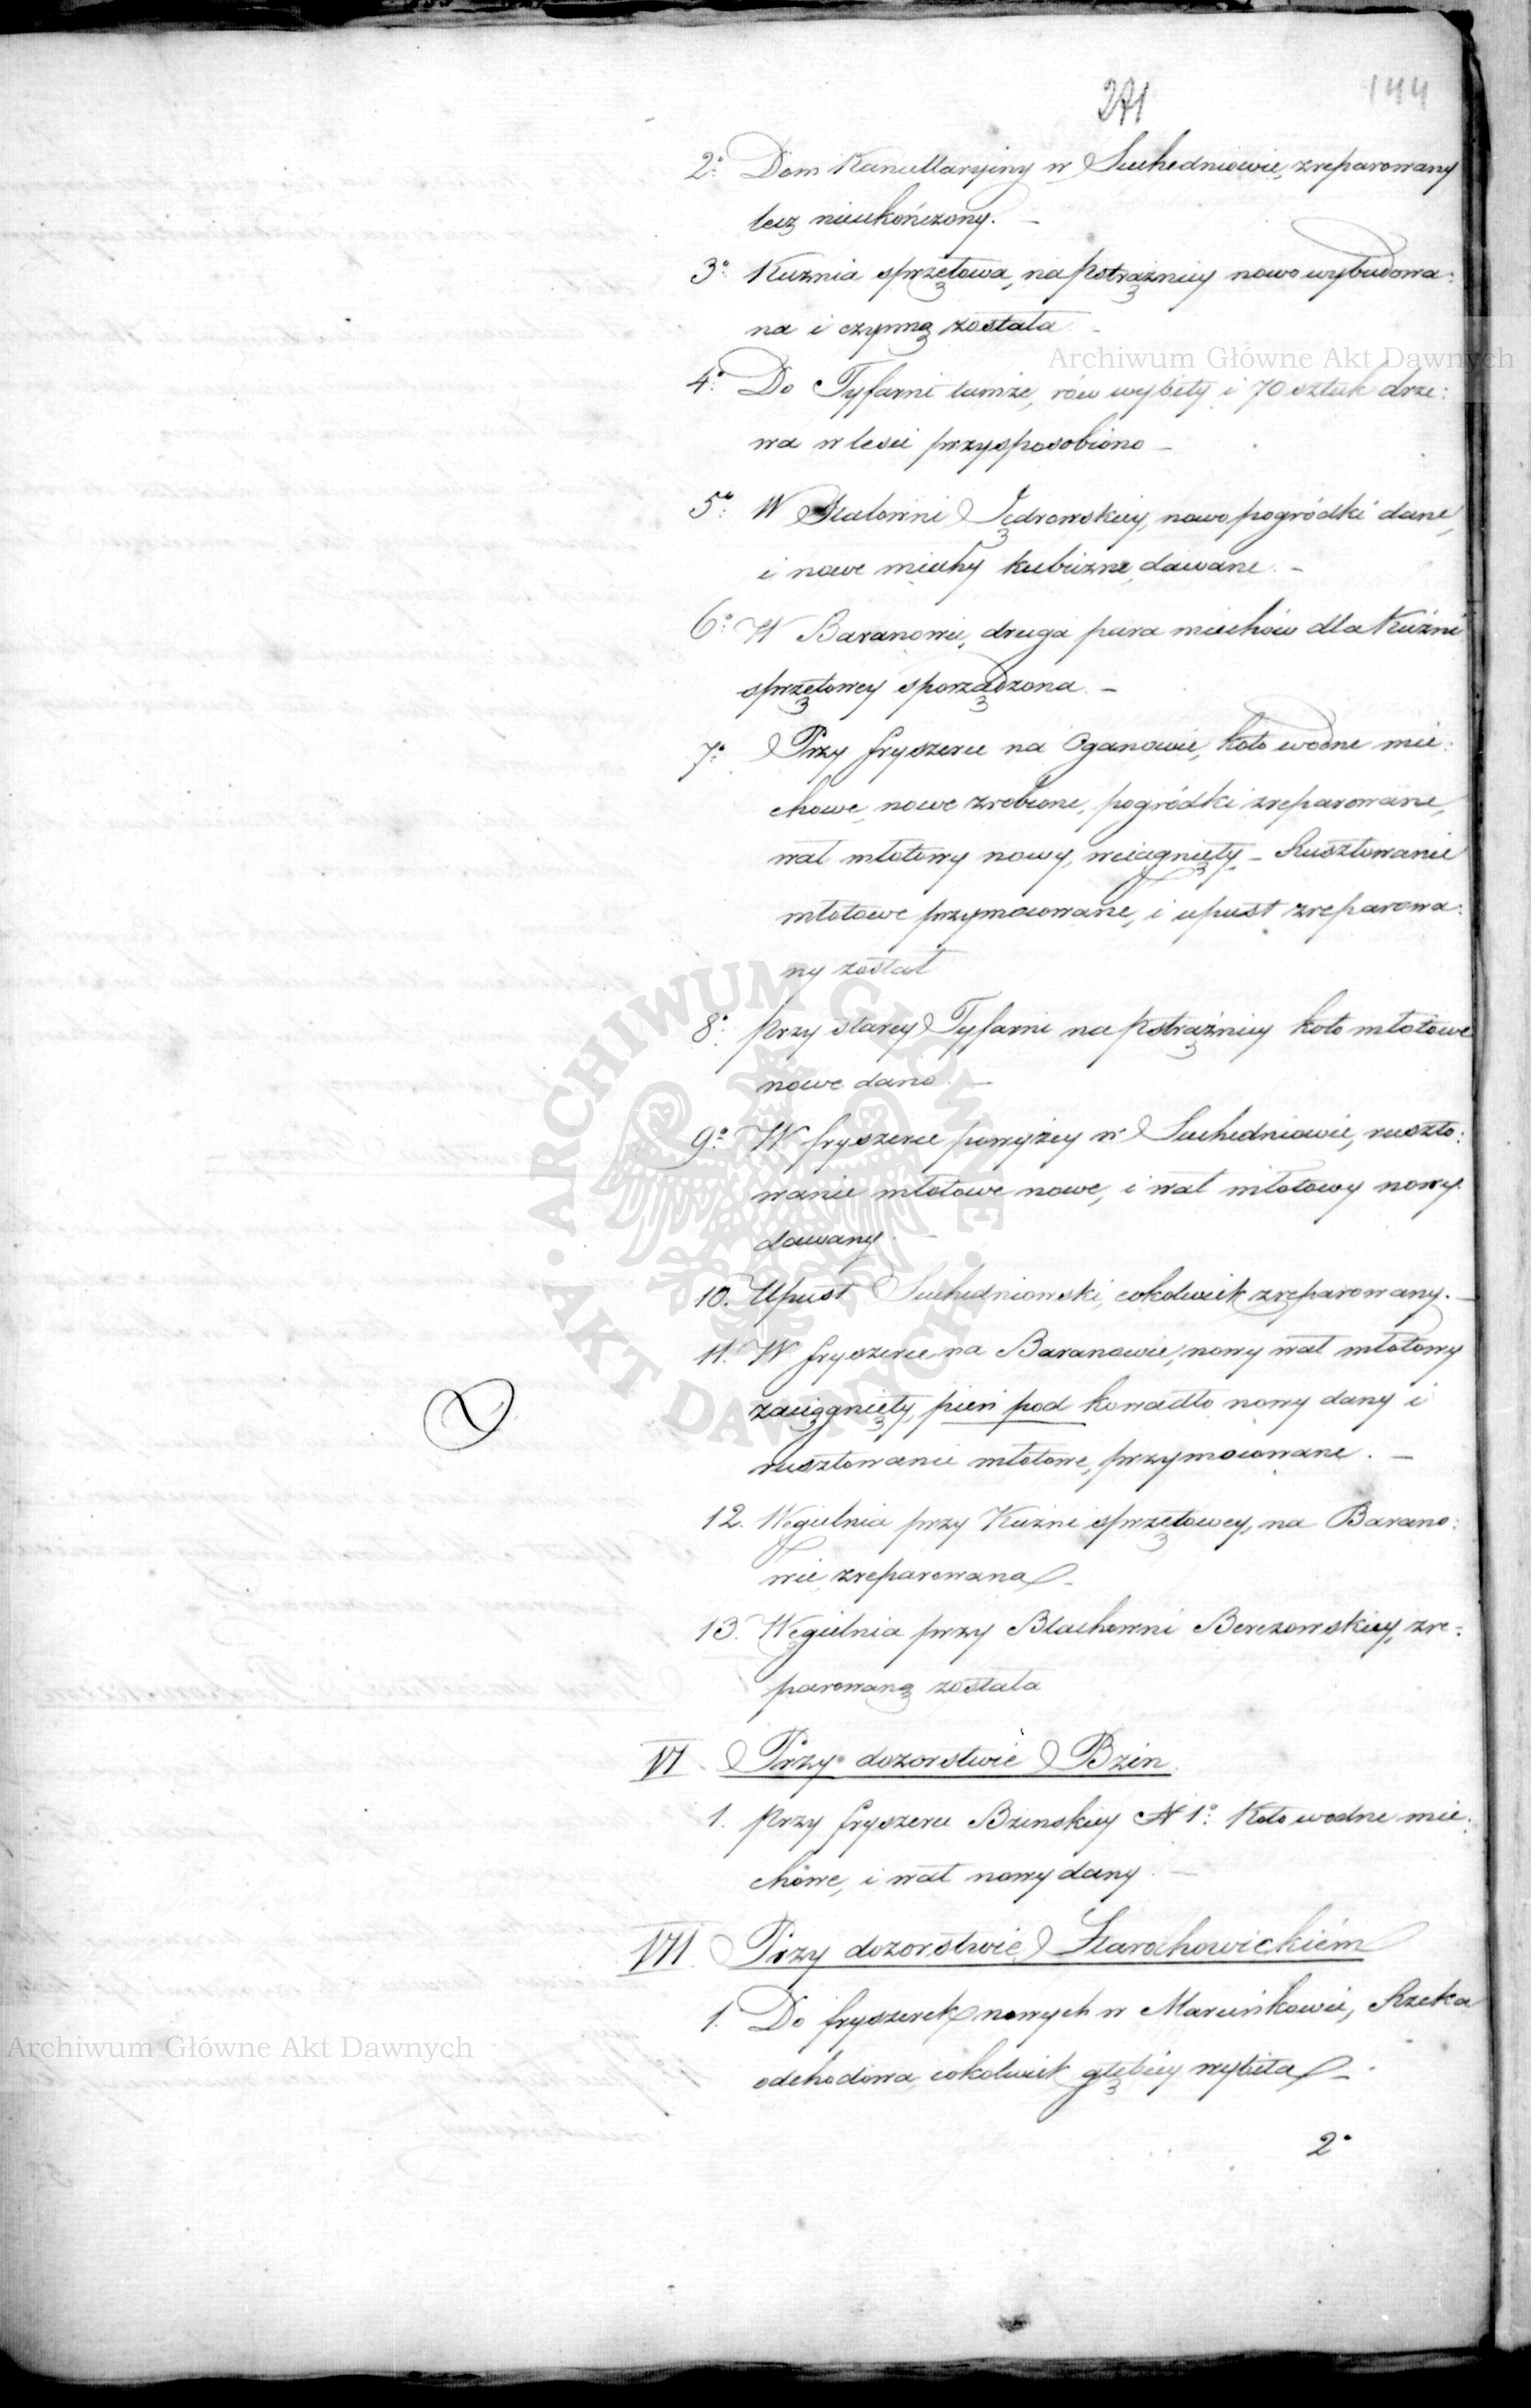 271
144
2° Dom Kancellaryiny w Suchedniowie, zreparowany
lecz nieukończony. —
3° Kuznia sprzętowa, na Pstrążnicy nowo wybudowa:
na i czynną została —
Archiwum Główne Akt Dawnych
4° Do Tyfarni tamże, rów wybity i 70 sztuk drze:
wa w lesie przysposobiono —
5° W Stalowni Jędrowskiey, nowo pogródki dane,
i nowe miechy kubiczne dawane. —
6° W Baranowie, druga para miechów dla Kuźni
sprzętowey sporządzona. —
7° Przy fryszerce na Oganowie, koło wodne mie:
chowe, nowe zrobione, pogródki zreparowane,
wał młotowy nowy, wciągnięty. — Rusztowanie
młotowe przymocowane, i upust zreparowa:
ny został
8° Przy starey Tyfarni na Pstrążnicy koło młotowe
nowe dano. —
9° W fryszerce powyżey w Suchedniowie, ruszto:
wanie młotowe nowe, i wał młotowy nowy
dawany. —
10. Upust Suchedniowski, cokolwiek zreparowany. —
11. W fryszerce na Baranowie, nowy wał młotowy
zaciągnięty, pień pod kowadło nowy dany i
rusztowanie młotowe, przymocowane. —
12. Węgielnia przy Kuźni sprzętowey, na Barano:
wie zreparowana —
13. Węgielnia przy Blachowni Berezowskiey, zre:
parowaną została
VI. Przy dozorstwie Bzin
1. Przy fryszerce Bzinskiey N 1° Koło wodne mie:
chowe, i wał nowy dany. —
VII. Przy dozorstwie Starachowickiém
1. Do fryszerek nowych w Marcinkowie, Rzeka
odchodowa, cokolwiek głębiey wybita —
Archiwum Główne Akt Dawnych
2°
ARCHIWUM GŁÓWNE AKT DAWNYCH